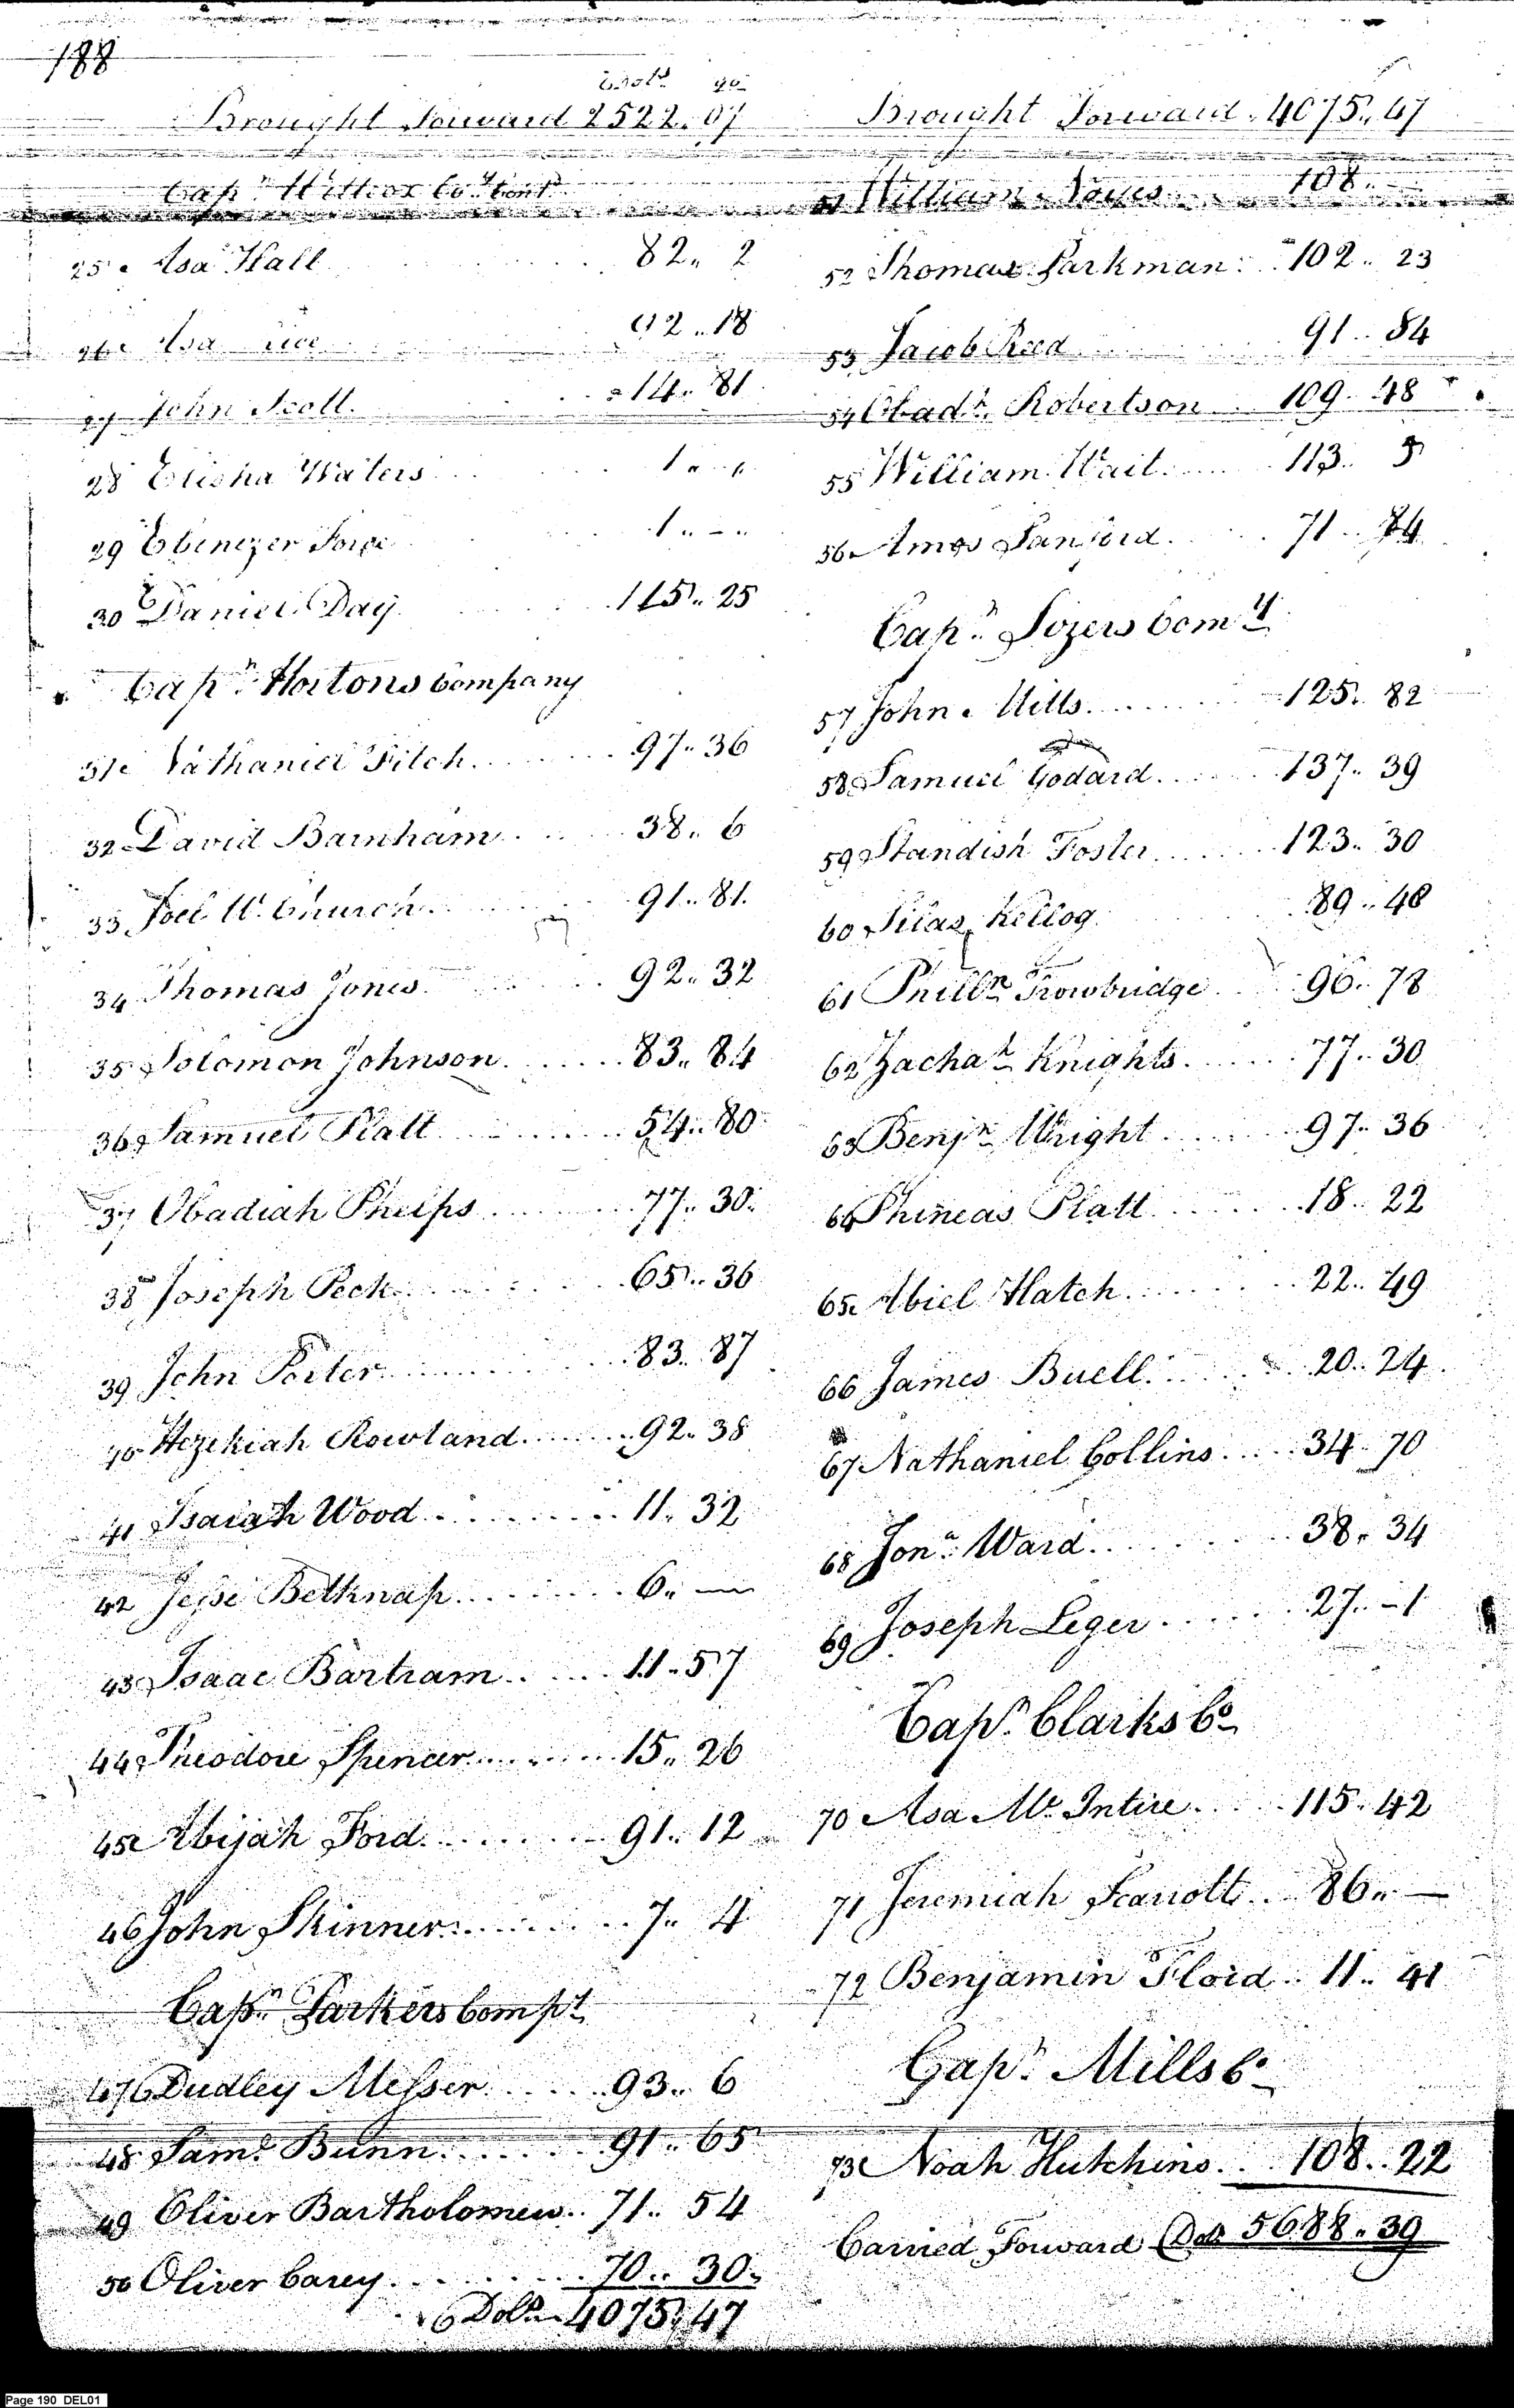 188
Dolls 90
Brought Forward 2522.. 07
Capn Co Cont
25 Asa Hall 82.. 2
26 Asa Rice 92.. 18
27 John Scott 14.. 81
28 Elisha Waters 1.. "
29 Ebenezer Force 1.. -
30 Daniel Day 115.. 25
Capn Hortons Company
31 Nathaniel Fitch 97.. 36
32 David Barnham 38.. 6
33 Joel W. Church 91.. 81
34 Thomas Jones 92.. 32
35 Solomon Johnson 83.. 84
36 Samuel Platt 54.. 80
37 Obadiah Phelps 77.. 30
38 Joseph Peck 65.. 36
39 John Porter 83.. 87
40 Hezekiah Rowland 92.. 38
41 Isaiah Wood 11.. 32
42 Jesse Belknap 6.. —
43 Isaac Bartram 11.. 57
44 Theodore Spencer 15.. 26
45 Abijah Ford 91.. 12
46 John Skinner 7.. 4
Capn Parkers Compy
47 Dudley Messer 93.. 6
48 Saml Bunn 91.. 65
49 Oliver Bartholomew 71.. 54
50 Oliver Carey 70.. 30
Dolls 4075.. 47
Brought Forward 4075.. 47
51 William Noyes 108..
52 Thomas Parkman 102.. 23
53 Jacob Reed 91.. 84
54 Obadh Robertson 109.. 48
55 William Wait 113..
56 Amos Sanford 71.. 84
Capn Sizers Comy
57 John Mills 125.. 82
58 Samuel Godard 137.. 39
59 Standish Foster 123.. 30
60 Silas Kellog 89.. 48
61 Philln Trowbridge 96.. 78
62 Zachah Knights 77.. 30
63 Benjn Wright 97.. 36
64 Phineas Platt 18.. 22
65 Abiel Hatch 22.. 49
66 James Buell 20.. 24
67 Nathaniel Collins 34.. 70
68 Jona Ward 38.. 34
69 Joseph Leger 27.. -1
Capn Clarks Co
70 Asa Mc Intire 115.. 42
71 Jeremiah Scarrott 86.. —
72 Benjamin Floid 11.. 41
Capn Mills Co
73 Noah Hutchins 108.. 22
Carried Forward Dols 5688.. 39
Page 190 DEL01